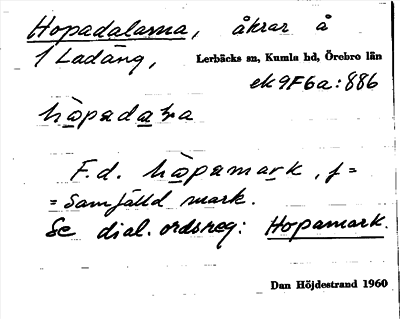 Hopadalarna, åkrar å
1 Ladäng,
Lerbäcks sn, Kumla hd, Örebro län
ek 9F6a:886
F.d. hòpamark, f=
=samfälld mark.
Se dial. ordsreg: Hopamark.
Dan Höjdestrand 1960